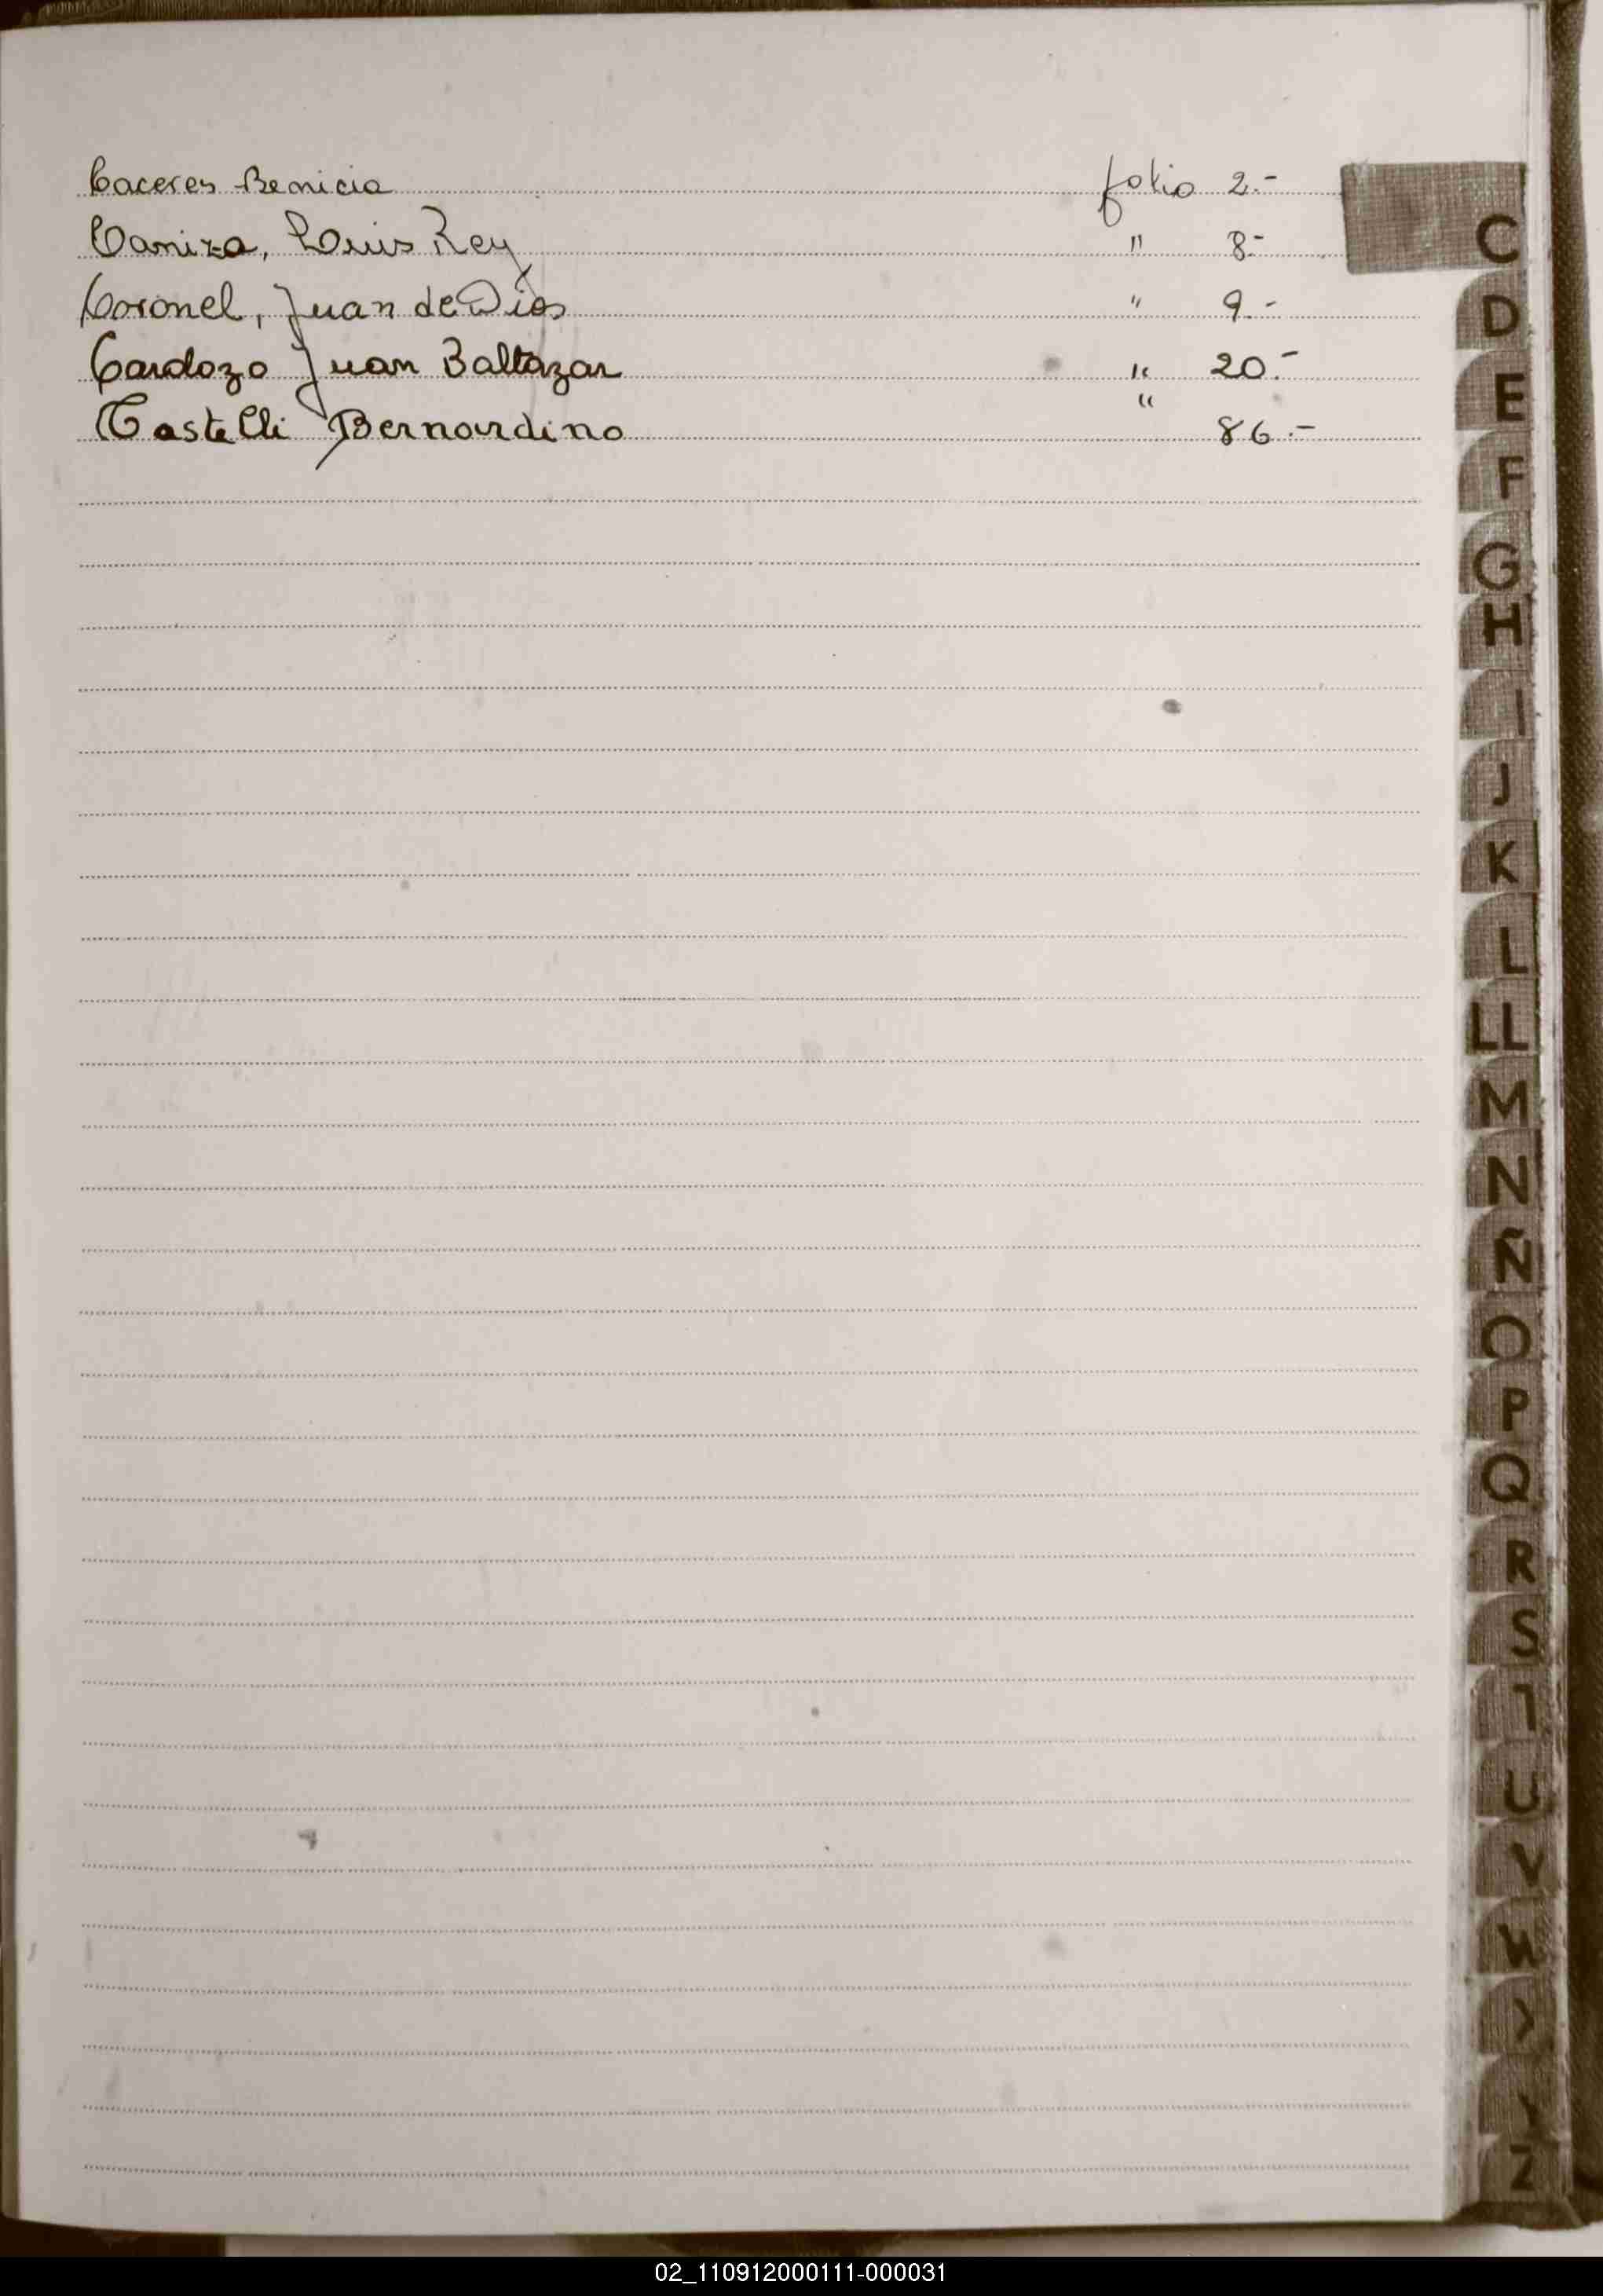 Caceres Benicia folio 2.-
Caniza, Luis Rey " 8-
Coronel, Juan de Dios " 9.-
Cardozo Juan Baltazar " 20.-
Castelli Bernardino " 86.-
C
D
E
F
G
H
I
J
K
L
LL
M
N
Ñ
O
P
Q
R
S
T
U
V
W
Z
02_110912000111-000031